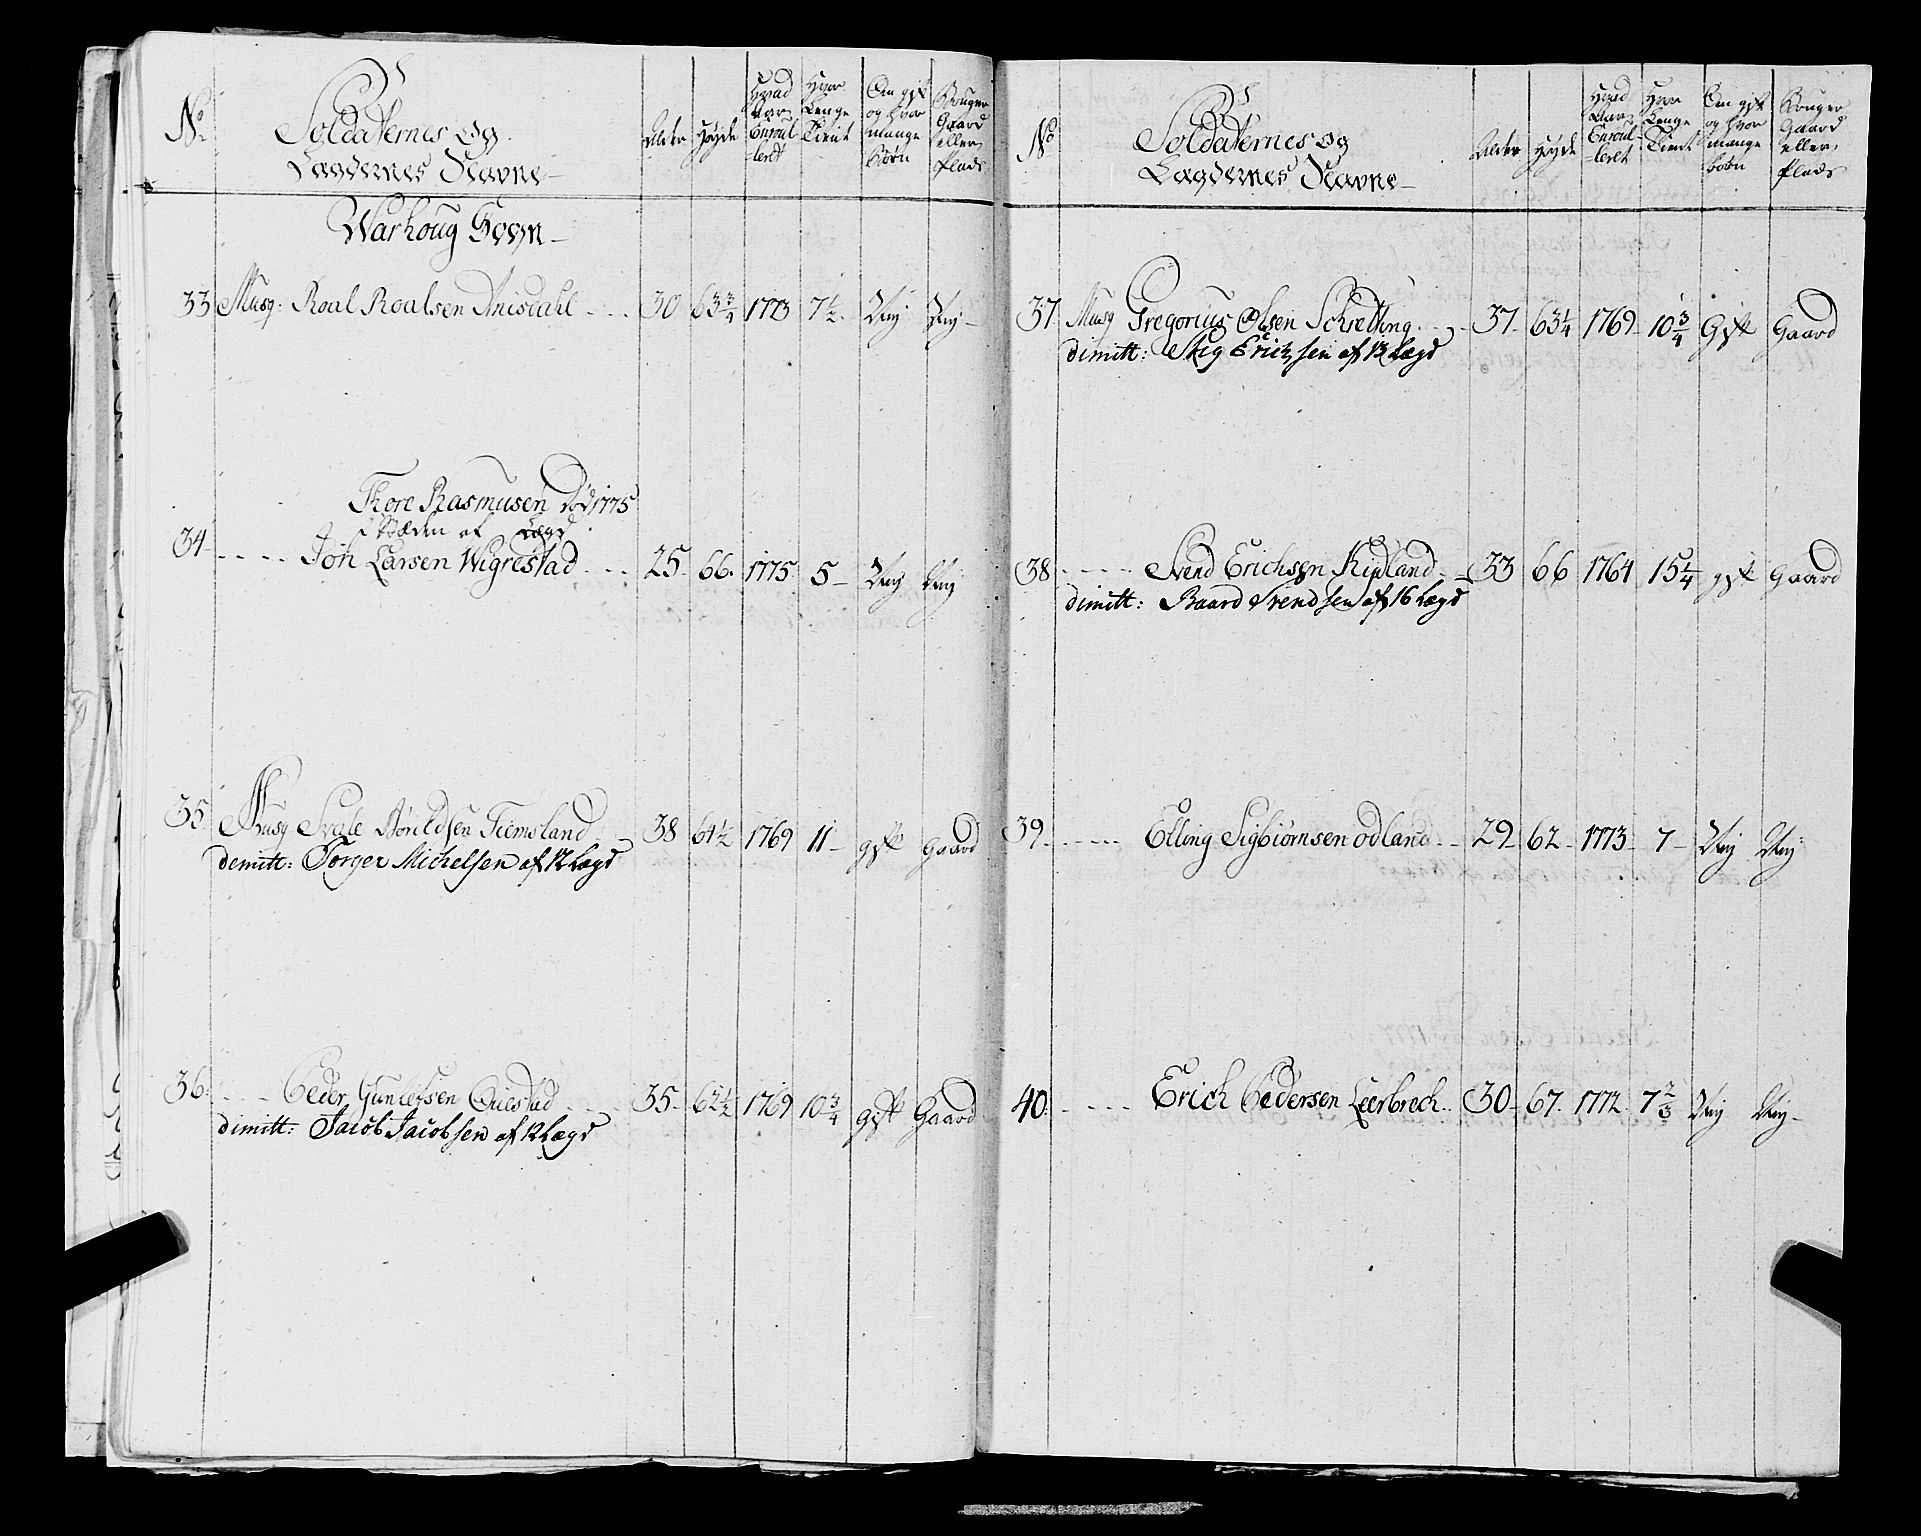 No
Soldaternes og
Lægdernes Navne
Alder
Høyde
Hvad
Aar
Enroul
leret
Hvor
Lenge
Tient
Om gift
og hvor
mange
Børn
Bruger
Gaard
eller
Plads
Warhoug Sogn
33 Musq: Roal Roalsen Anisdahl 30 63 3/4 1773 7 1/2 Nej Nej
Thore Rasmusen Død 1775
i Stæden af Lægd
34 Jon Larsen Wigrestad 25 66 1775 5 Nej Nej
35 Musq Svale Tiemsland 38 61 1/2 1769 11 gift Gaard
demitt: Torger Michelsen af 12 Lægd
36 Peder Gunlefsen Qviestad 35 62 1/2 1769 10 3/4 gift Gaard
dimitt: Jacob Jacobsen af 12 Lægd
No
Soldaternes og
Lægdernes Navne
Alder
Høyde
Hvad
Aar
Enroul
leret
Hvor
Lenge
Tient
Om gift
og hvor
mange
Børn
Bruger
Gaard
eller
Plads
37 Musq Gregorius Olsen Schretting 37 63 1/4 1769 10 3/4 Gift Gaard
dimitt: Stig Erichsen af 13 Lægd
38 Svend Erichsen Ripland 33 66 1764 15 1/4 gift Gaard
dimitt: Baard Svendsen af 16 Lægd
39 Elling Sigbiørnsen Odland 29 62 1773 7 Nej Nej
40 Erich Pedersen Leerbrech 30 67 1772 7 2/3 Nej Nej